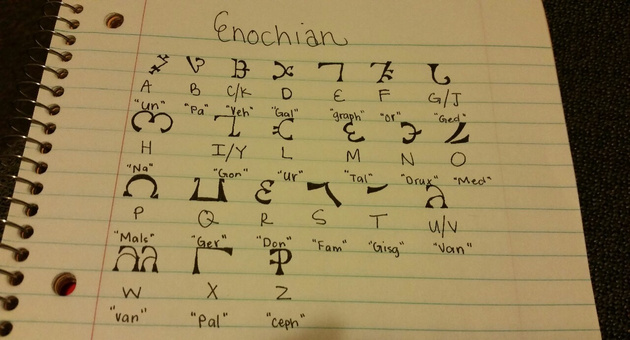 Enochian
A B C/K D E F G/J
"Un" "Pa" "Veh" "Gal" "graph" "or" "Ged"
H I/Y L M N O
"Na" "Gon" "ur" "Tal" "Drux" "Med"
P Q R S T U/V
"Mals" "Ger" "Don" "Fam" "Gisg" "Van"
W X Z
"Van" "Pal" "ceph"